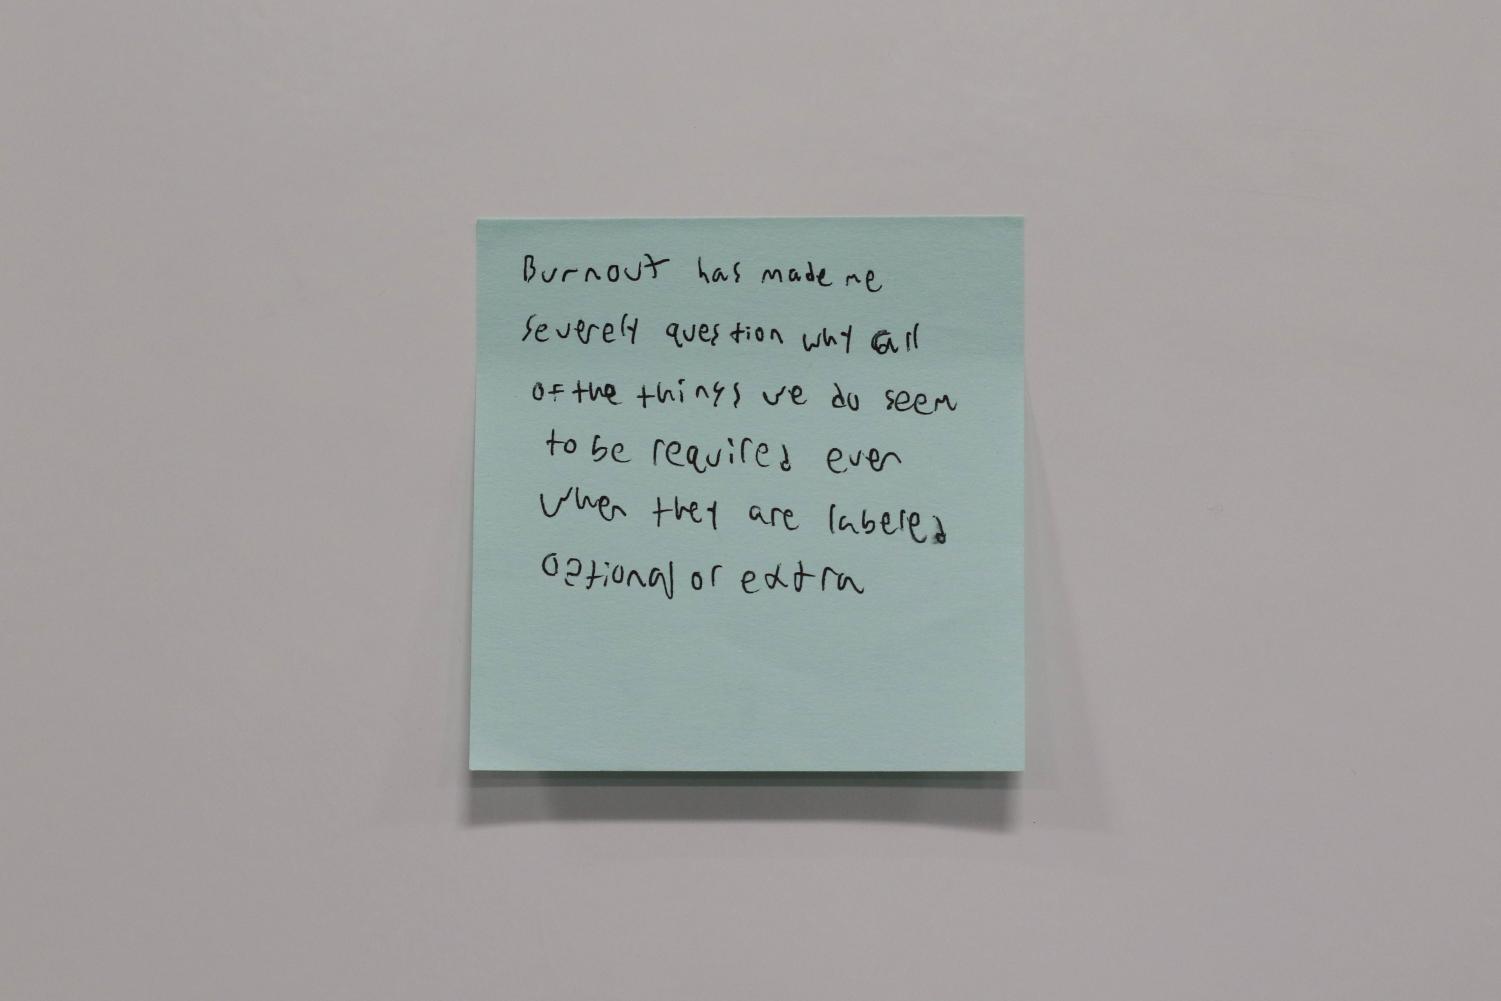 Burnout has made me
severely question why all
of the things we do seem
to be required even
when they are labeled
optional or extra